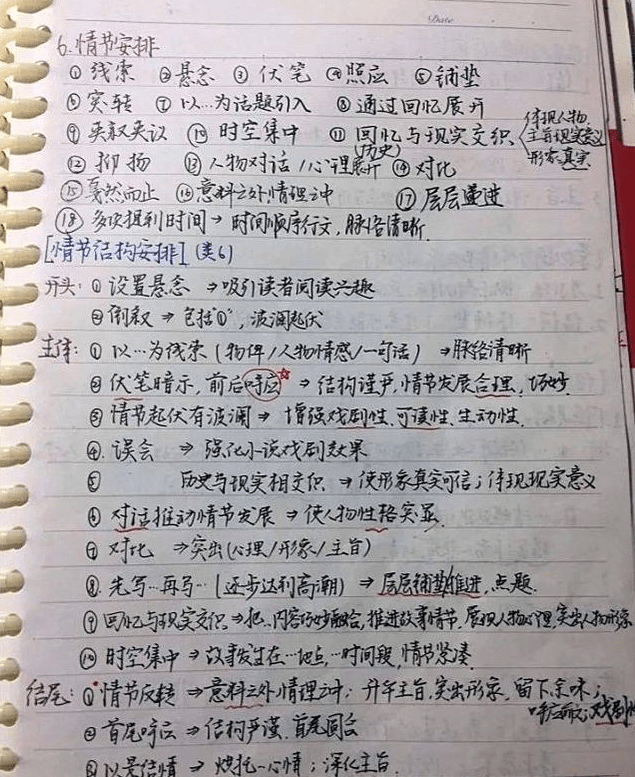 Date
6.情节安排
①线索 ②悬念 ③伏笔 ④照应 ⑤铺垫
⑥突转 ⑦以…为话题引入 ⑧通过回忆展开
⑨夹叙夹议 ⑩时空集中 ⑪回忆与现实交织 体现人物
(历史) 主旨现实意义
形象真实
⑫抑扬 ⑬人物对话/心理展开 ⑭对比
⑮戛然而止 ⑯意料之外情理之中 ⑰层层递进
⑱多次提到时间→时间顺序行文,脉络清晰.
[情节结构安排](类6)
开头:①设置悬念→吸引读者阅读兴趣
②倒叙→包括"①",波澜起伏
主体:①以…为线索(物件/人物情感/一句话)→脉络清晰
②伏笔暗示,前后呼应☆→结构严谨,情节发展合理,巧妙
③情节起伏有波澜→增强戏剧性.可读性.生动性.
④误会→强化小说戏剧效果
⑤历史与现实相交织→使形象真实可信;体现现实意义
⑥对话推动情节发展→使人物性格突显.
⑦对比→突出(心理/形象/主旨)
⑧先写…再写…(逐步达到高潮)→层层铺垫推进,点题.
⑨回忆与现实交织→把…内容巧妙融合,推进故事情节,展现人物心理,突出人物形象
⑩时空集中→故事发生在…地点,…时间段,情节紧凑.
结尾:①情节反转→意料之外情理之中;升华主旨.突出形象,留下余味;
呼应前文;戏剧性
②首尾呼应→结构严谨,首尾圆合
③以景结情→烘托…心情;深化主旨.